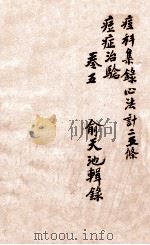 痘科集錄心法計二五條
痘症治驗
卷五 俞天池輯錄
www.mtoou.info